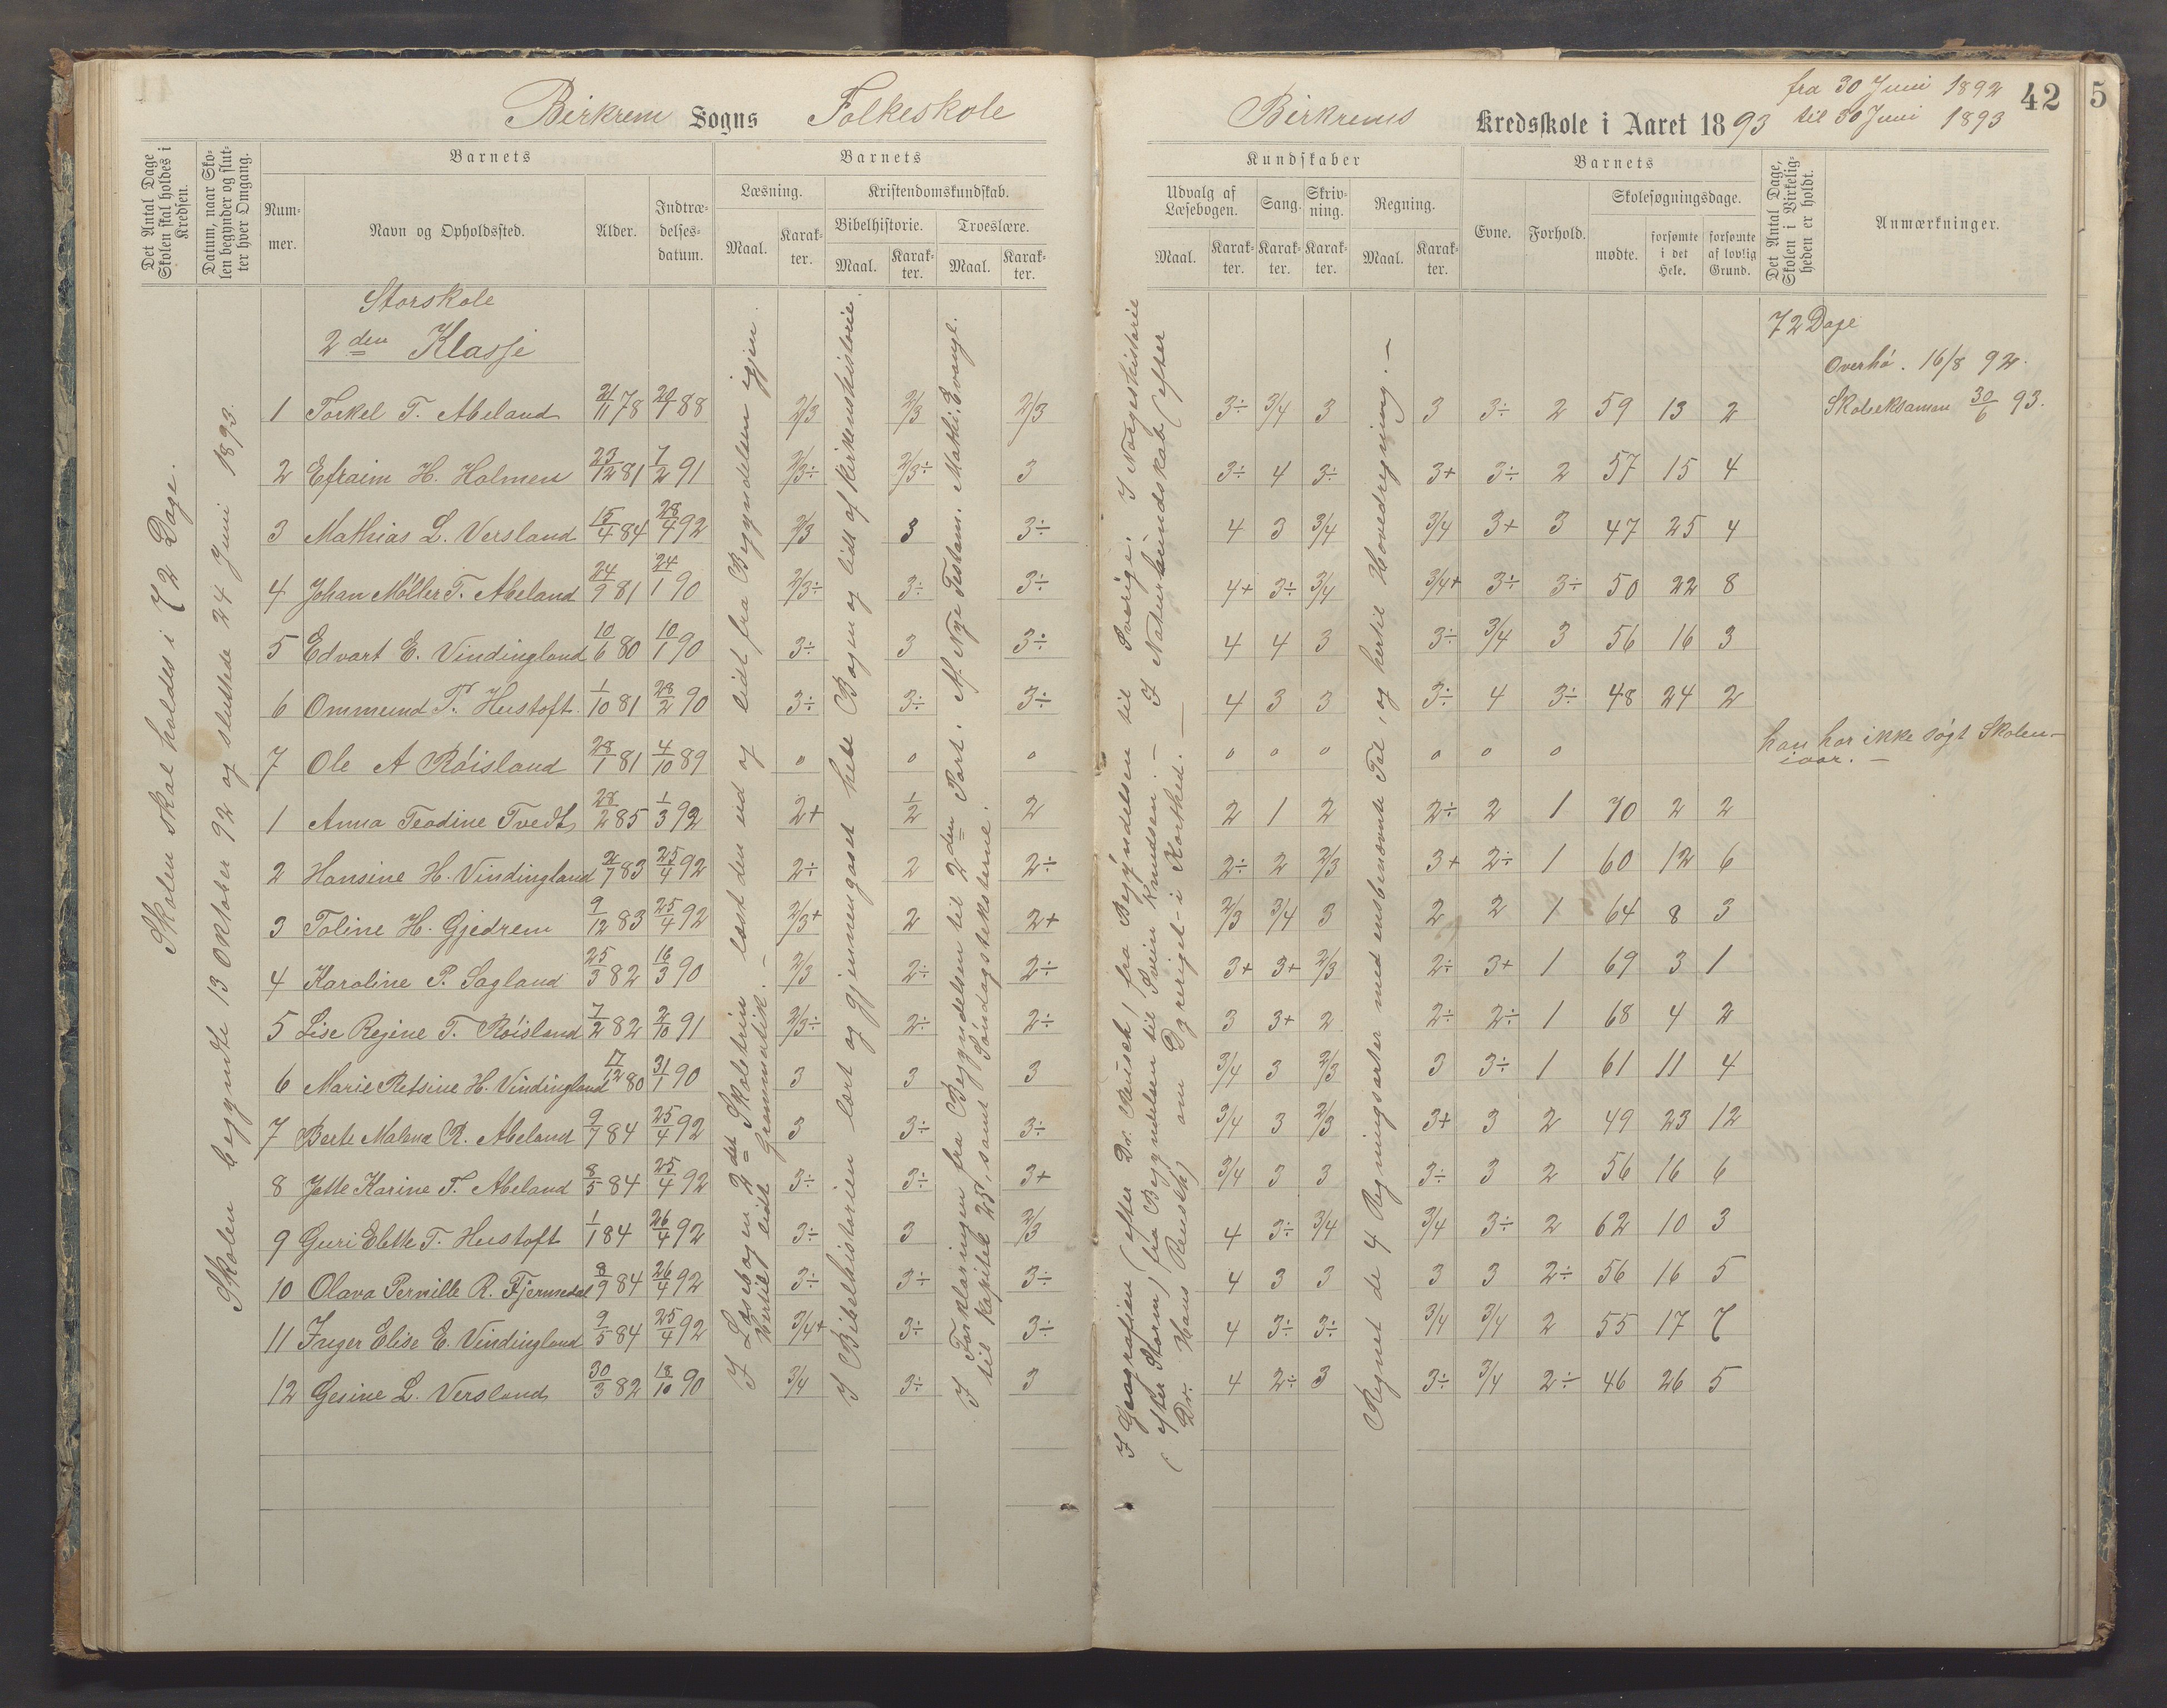 Birkrem Sogns Folkeskole
Det Antal Dage Skolen skal holdes i Kredsen.
Datum, naar Skolen begynder og slutter hver Omgang.
Barnets
Nummer.
Navn og Opholdssted.
Alder.
Indtrædelsesdatum.
Barnets
Læsning.
Maal.
Karakter.
Kristendomskundskab.
Bibelhistorie.
Maal.
Karakter.
Troeslære.
Maal.
Karakter.
Skolen skal holdes i 72 Dage.
Skolen begyndte 13 Oktober 92 og sluttede 24 Juni 1893.
Storskole
2den Klasse
1 Torkel T. Abeland 21/11 78 20/1 88 2/3 2/3 2/3
2 Efraim H. Holmen 23/12 81 7/2 91 2/3÷ 2/3÷ 3
3 Mathias L. Versland 15/4 84 28/4 92 2/3 3 3÷
4 Johan Möller T. Abeland 24/9 81 24/1 90 2/3÷ 3÷ 3÷
5 Edvart E. Vindingland 10/6 80 10/1 90 3÷ 3 3÷
6 Ommund T. Hustoft 1/10 81 28/2 90 3÷ 3÷ 3÷
7 Ole A Röisland 28/1 81 4/10 89 0 0 0
1 Anna Teodine Tvedt 28/2 85 1/3 92 2+ 1/2 2
2 Hansine H. Vindingland 2/7 83 25/4 92 2÷ 2 2÷
3 Toline H. Gjedrem 9/12 83 25/4 92 2/3+ 2 2+
4 Karoline P. Sagland 25/3 82 16/3 90 2/3 2÷ 2÷
5 Lise Regine T. Röisland 7/2 82 2/10 91 2/3÷ 2÷ 2÷
6 Marie Retsine H. Vindingland 17/12 80 31/1 90 3 3 3
7 Berte Malena R. Abeland 9/7 84 25/4 92 3 3÷ 3÷
8 Jette Karine T. Abeland 8/5 84 25/4 92 3÷ 3÷ 3+
9 Guri Elette T. Hustoft 1/1 84 26/4 92 3÷ 3 2/3
10 Olava Pernille R. Fjermedal 8/9 84 26/4 92 3÷ 3÷ 3÷
11 Inger Elise E. Vindingland 9/5 84 25/4 92 3/4+ 3÷ 3÷
12 Gesine L. Versland 30/3 82 18/10 90 3/4 3÷ 3
I Læsebogen 2det Skoletrin læst den ud og lidt fra Begyndelsen igjen.
Hertil lidt Grammatik. —
I Bibelhistorien lært og gjennemgaaet hele Bogen og lidt af Kirkenshistorie.
I Forklaringen fra Begyndelsen til 2den Part. Af Nye Testam. Mathi. Evangl.
til Kapitel 25, samt Söndagsteksterne.
Birkrems Kredsskole i Aaret 1893
fra 30 Juni 1892
til 30 Juni 1893
42
5
Kundskaber
Udvalg af Læsebogen.
Maal.
Karakter.
Sang.
Karakter.
Skrivning.
Karakter.
Regning.
Maal.
Karakter.
Barnets
Evne.
Forhold.
Skolesøgningsdage.
mødte.
forsømte i det Hele.
forsømte af lovlig Grund.
Det Antal Dage, Skolen i Virkeligheden er holdt.
Anmærkninger.
72 Dage
Overhö. 16/8 92.
Skoleeksamen 30/6 93.
3÷ 3/4 3 3 3÷ 2 59 13 2
3÷ 4 3÷ 3+ 3÷ 2 57 15 4
4 3 3/4 3/4 3+ 3 47 25 4
4+ 3÷ 3/4 3/4+ 3÷ 3÷ 50 22 8
4 4 3 3÷ 3/4 3 56 16 3
4 3 3 3÷ 4 3÷ 48 24 2
0 0 0 0 0 0 han har ikke sögt Skolen
iaar. —
2 1 2 2÷ 2 1 70 2 2
2÷ 2 2/3 3+ 2÷ 1 60 12 6
2/3 3/4 3 2 2 1 64 8 3
3+ 3+ 2/3 2÷ 3+ 1 69 3 1
3 3+ 2 2÷ 2÷ 1 68 4 2
3/4 3 2/3 3 3÷ 1 61 11 4
3/4 3 2/3 3+ 3 2 49 23 12
3/4 3 3 3÷ 3 2 56 16 6
4 3÷ 3/4 3/4 3÷ 2 62 10 3
4 3 3 3 3 2÷ 56 16 5
4 3÷ 3÷ 3/4 3/4 2 55 17 7
4 2÷ 3 3÷ 3/4 2÷ 46 26 5
I Geografien (efter Dr. Reusch) fra Begyndelsen til Sverige. I Norgeshistorie
(efter Storm) fra Begyndelsen til Svein Knudsen. — I Naturkundskab (efter
Dr. Hans Reusch) om Dyreriget i Korthed. —
Regnet de 4 Regningsarter med ensbenævnte Tal, og hertil Hovedregning. —